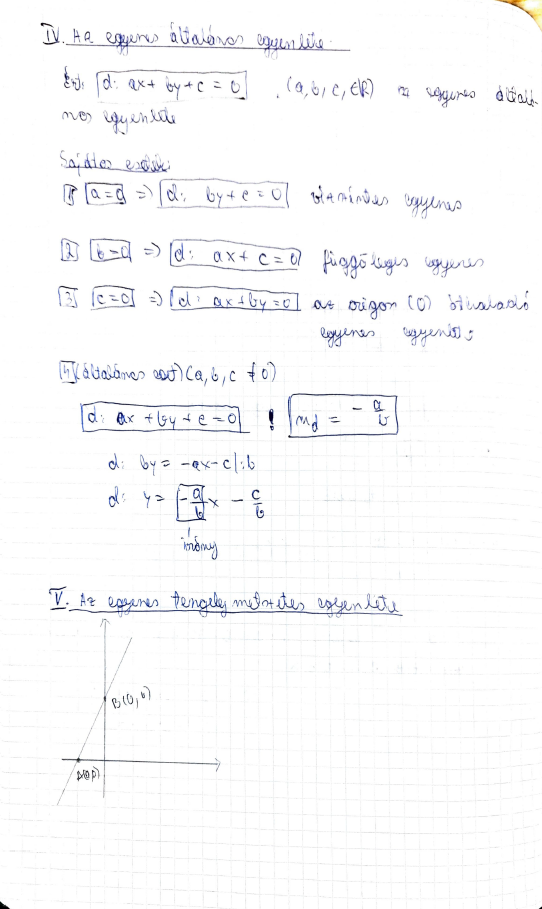 IV. Az egyenes általános egyenlete
Ért: d: ax + by + c = 0 , (a, b, c, ∈ℝ) az egyenes általá-
nos egyenlete
Sajátos esetek:
1 a=0 => d: by + c = 0 vízszintes egyenes
2 b=0 => d: ax + c = 0 függőleges egyenes
3 c=0 => d: ax + by = 0 az origon (O) áthaladó
egyenes egyenlete
4 (általános eset) (a, b, c ≠ 0)
d: ax + by + c = 0 ! m_d = -a/b
d: by = -ax - c |:b
d: y = -a/b x - c/b
irány
V. Az egyenes tengelymetszetes egyenlete
B(0, b)